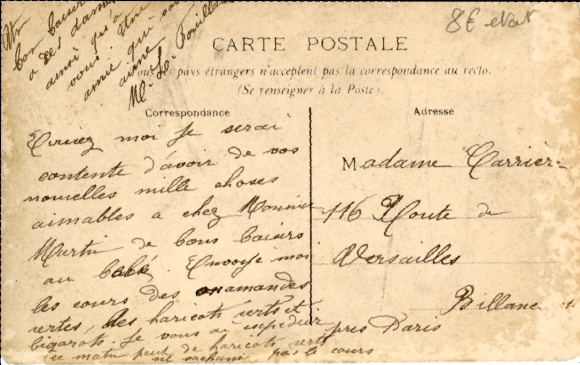 8€ etat
Un
bon baiser
a ces dames
ainsi qu'a
vous. Une
amie qui vous
aime
M. L. Bouillan
CARTE POSTALE
Tous les pays étrangers n'acceptent pas la correspondance au recto.
(Se renseigner à la Poste).
Correspondance
Ecrivez moi Je serai
contente d'avoir de vos
nouvelles mille choses
aimables a chez Monsieur
Martin de bons baisers
au bébé Envoyé moi
les cours des amandes
vertes, des haricots verts et
bigarots. Je vous ai expédier
ce matin peut de haricots verts
ne sachant pas le cours
Adresse
Madame Carrier
116 Route de
Versailles
Billanc
près Paris